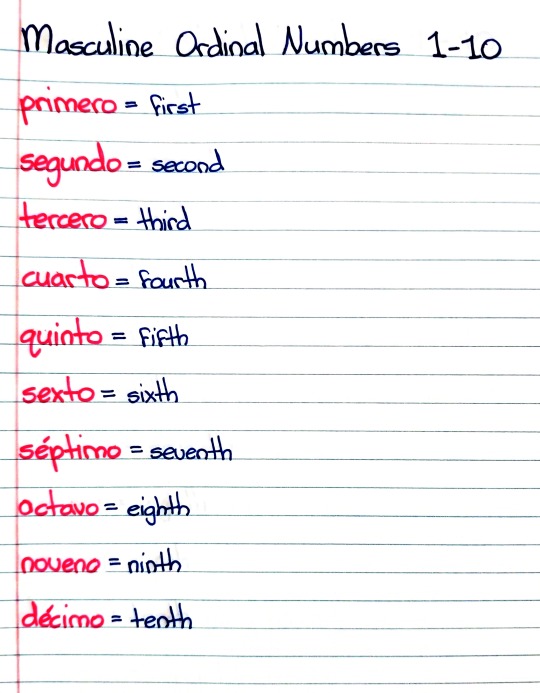 Masculine Ordinal Numbers 1-10
primero = first
segundo = second
tercero = third
cuarto = fourth
quinto = fifth
sexto = sixth
séptimo = seventh
octavo = eighth
noveno = ninth
décimo = tenth